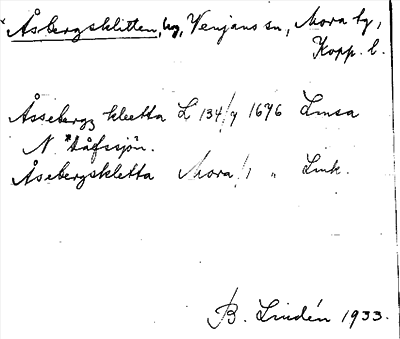 Åsbergsklitten, by, Venjans sn, Mora tg,
Kopp. l.
Åssebergz kleetta L 134/9 1676 Lmsa
N *Låfssjön.
Åsebergskletta Mora/1 „ Link.
B. Lindén 1933.